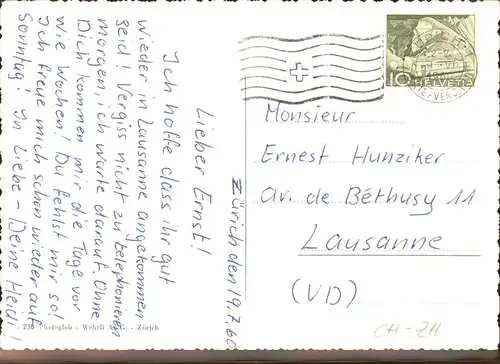 Zürich den 19.7.60
Lieber Ernst!
Ich hoffe dass ihr gut
wieder in Lausanne angekommen
seid! Vergiss nicht zu telephonieren
morgen, ich warte darauf. Ohne
Dich kommen mir die Tage vor
wie Wochen! Du fehlst mir so!
Ich freue mich schon wieder auf
Sonntag! In Liebe - Deine Heidi!
10 HELVETIA
Monsieur
Ernest Hunziker
av. de Béthusy 11
Lausanne
(VD)
CH-ZH
238 Photoglob - Wehrli A.G. - Zürich